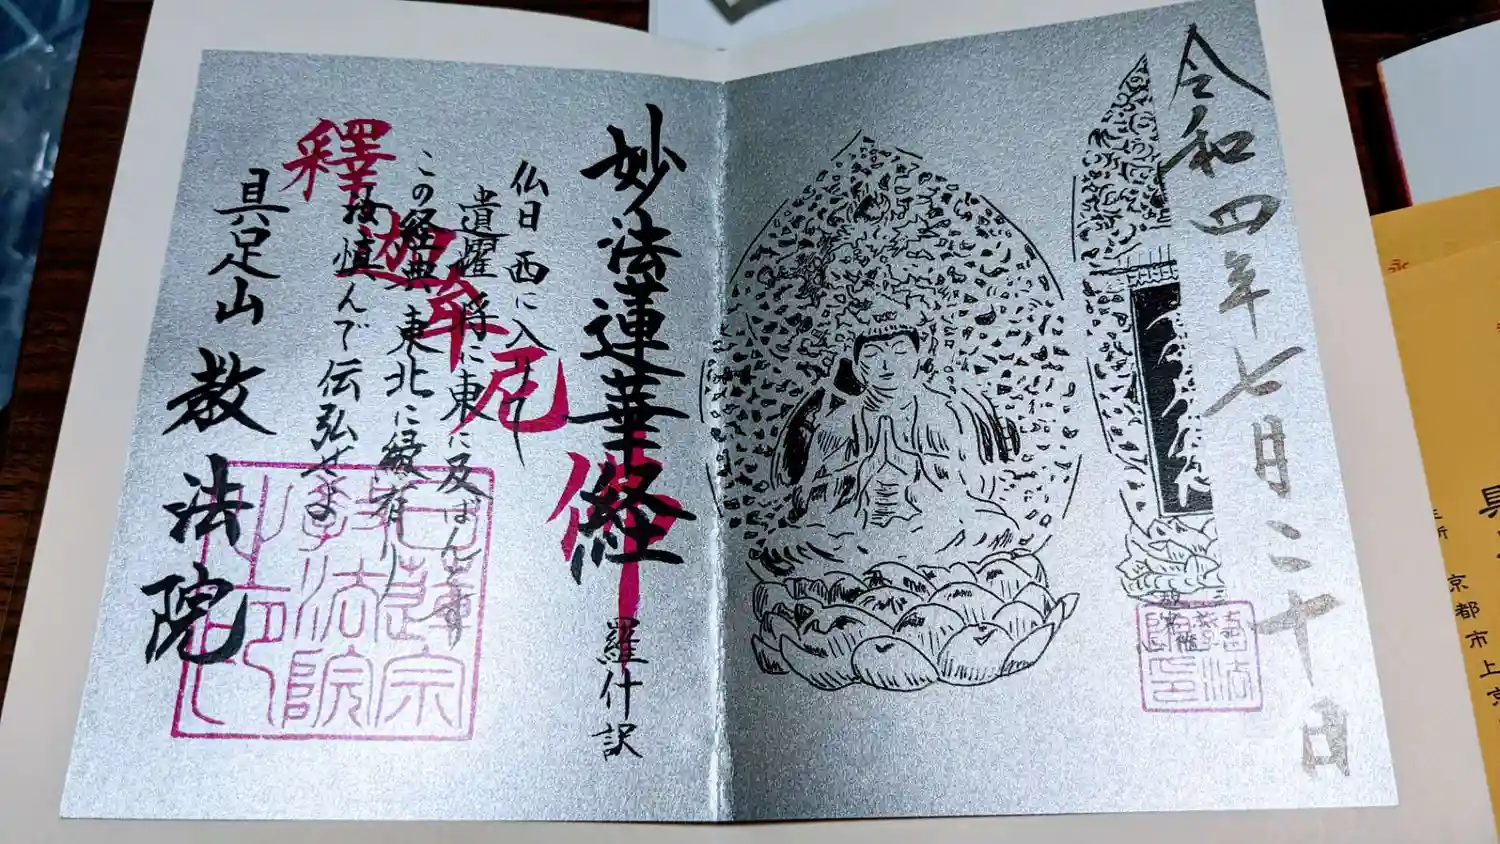 令和四年七月二十日
妙法蓮華経
羅什訳
仏日西に入り
遺躍将に東に及ばんとす
この経典東北に縁有り
汝慎んで伝弘せよ
釋迦牟尼仏
具足山
教法院
日蓮宗
教法院
之印